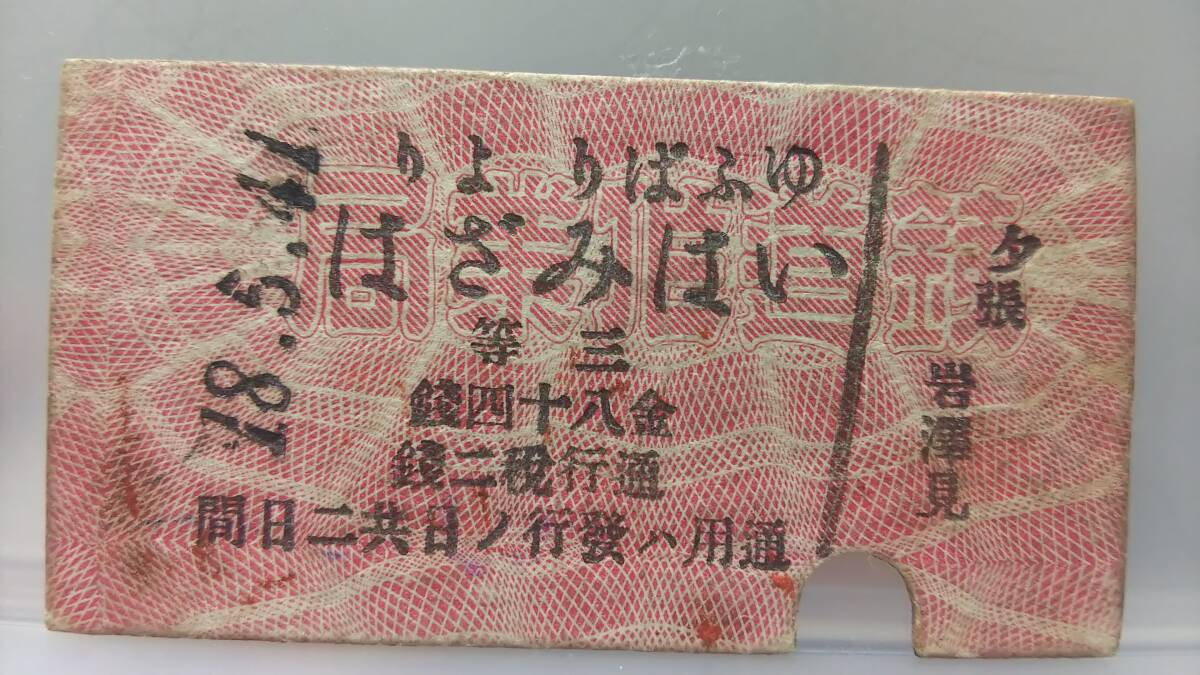 夕張
岩澤見
ゆふばりより
いはみざは
三等
金八十四錢
通行税二錢
通用ハ發行ノ日共二日間
18.5.41
鐵道作業局